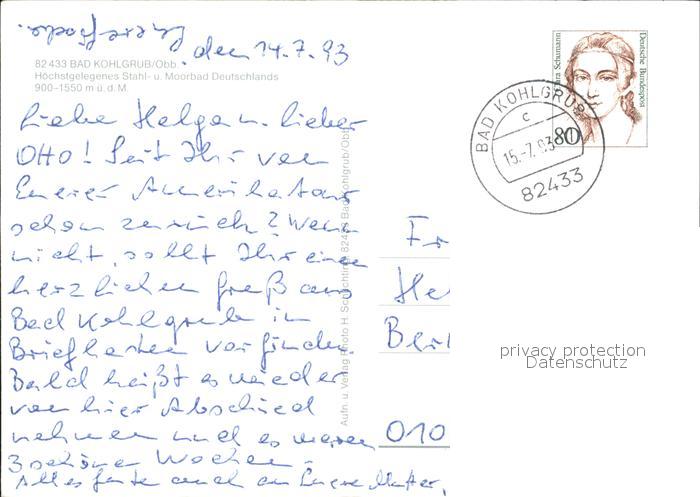 Eure Gode.
den 14.7.93
82433 BAD KOHLGRUB/Obb.
Höchstgelegenes Stahl- u. Moorbad Deutschlands
900–1550 m ü. d. M
Liebe Helga u. lieber
Otto! Seit Ihr von
Eurer Amerikatour
schon zurück? Wenn
nicht, sollt Ihr einen
herzlichen Gruß aus
Bad Kohlgrub im
Briefkasten vorfinden.
Bald heißt es wieder
von hier Abschied
nehmen und es waren
3 schöne Wochen.
Alles Gute auch an Eure Mutter,
Aufn. u. Verlag Photo H. 82433 Bad Kohlgrub/Obb.
Clara Schumann
Deutsche Bundespost
80
BAD KOHLGRUB
c
15.-7.93
82433
Fr
He
Ber
010
privacy protection
Datenschutz